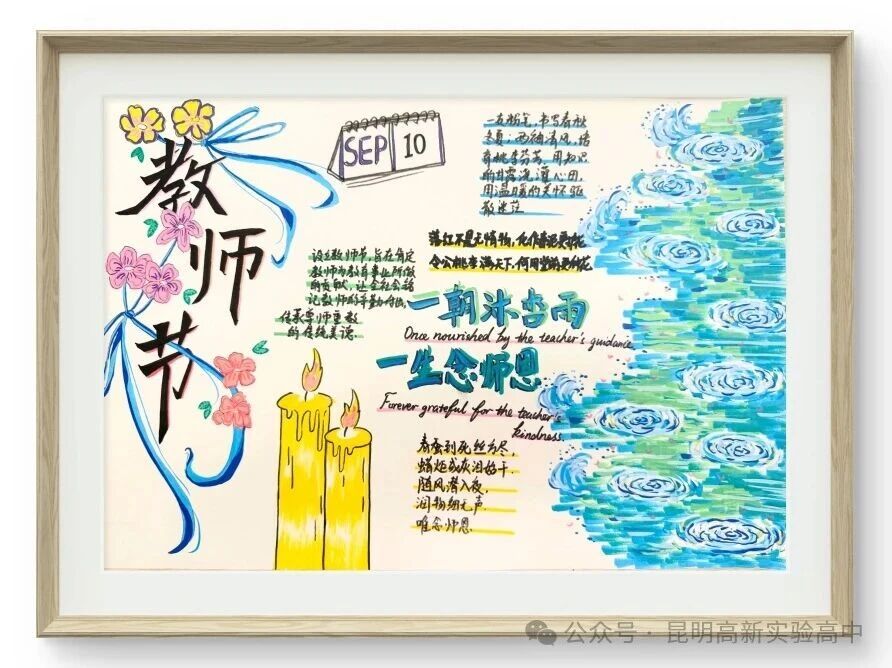 教师节
SEP 10
一支粉笔，书写春秋
冬夏；两袖清风，培
育桃李芬芳。用知识
的甘露浇灌心田，
用温暖的关怀驱
散迷茫
落红不是无情物，化作春泥更护花
令公桃李满天下，何用堂前更种花
设立教师节，旨在肯定
教师为教育事业所做
的贡献，让全社会铭
记教师的辛勤付出，
传承尊师重教
的传统美德
一朝沐杏雨
Once nourished by the teacher's guidance
一生念师恩
Forever grateful for the teacher's
kindness.
春蚕到死丝方尽，
蜡炬成灰泪始干
随风潜入夜，
润物细无声.
唯念师恩
公众号·昆明高新实验高中